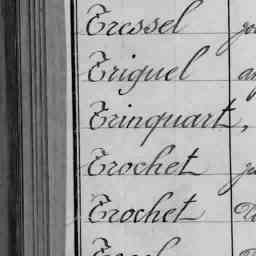 Tressel
Triguel
Trinquart,
Trochet
Trochet